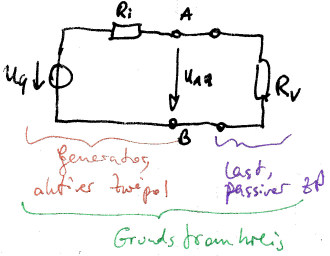 Ri
A
Uq
UAB
Rv
B
Generator,
aktiver Zwepol
Last,
passiver ZP
Grundstromkreis